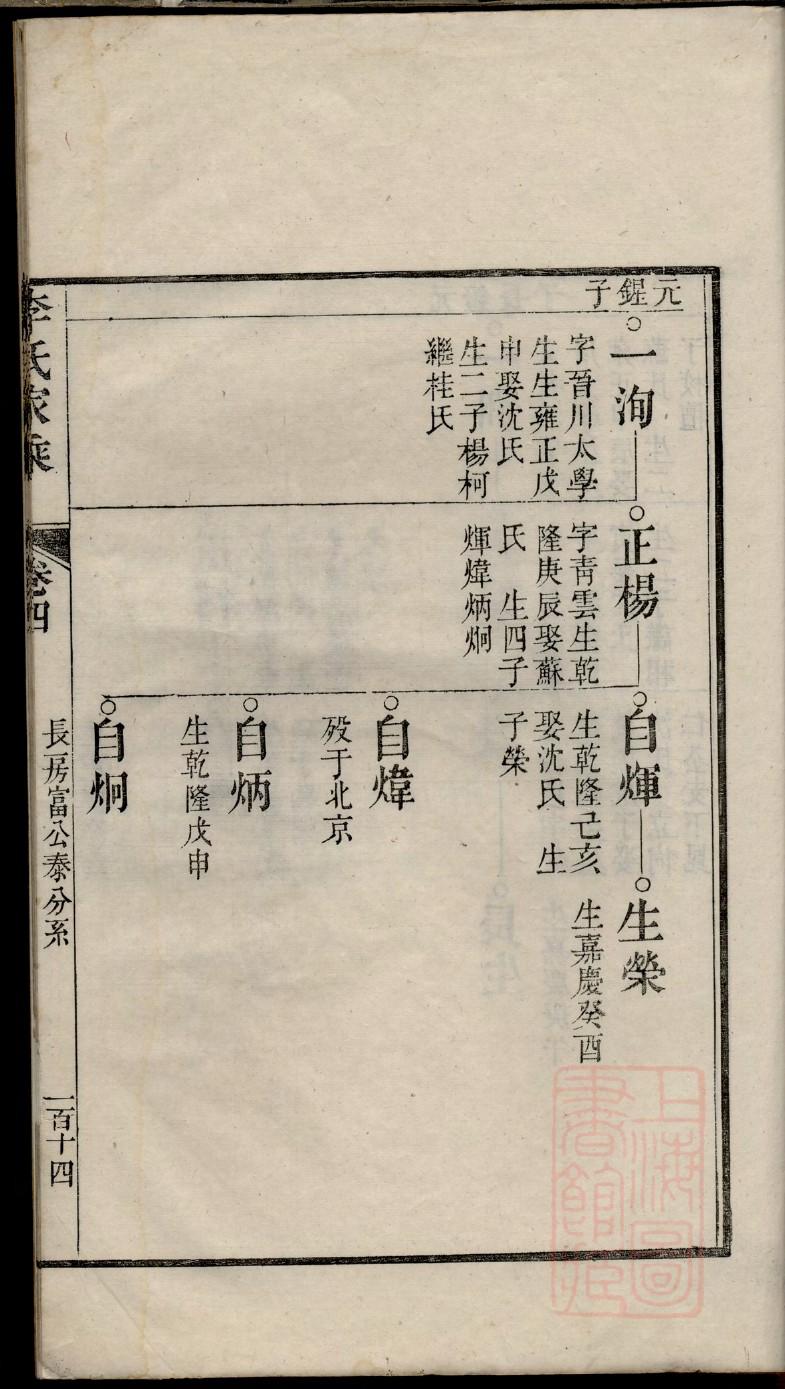 元鍟子
一洵
字晉川太學
生生雍正戊
申娶沈氏
生二子楊柯
繼桂氏
正楊
字靑雲生乾
隆庚辰娶蘇
氏 生四子
煇煒炳炯
自煇
生乾隆己亥
娶沈氏 生
子榮
生榮
生嘉慶癸酉
自煒
歿于北京
自炳
生乾隆戊申
自炯
李氏家乘
卷四
長房富公泰分系
一百十四
上海圖
書館藏